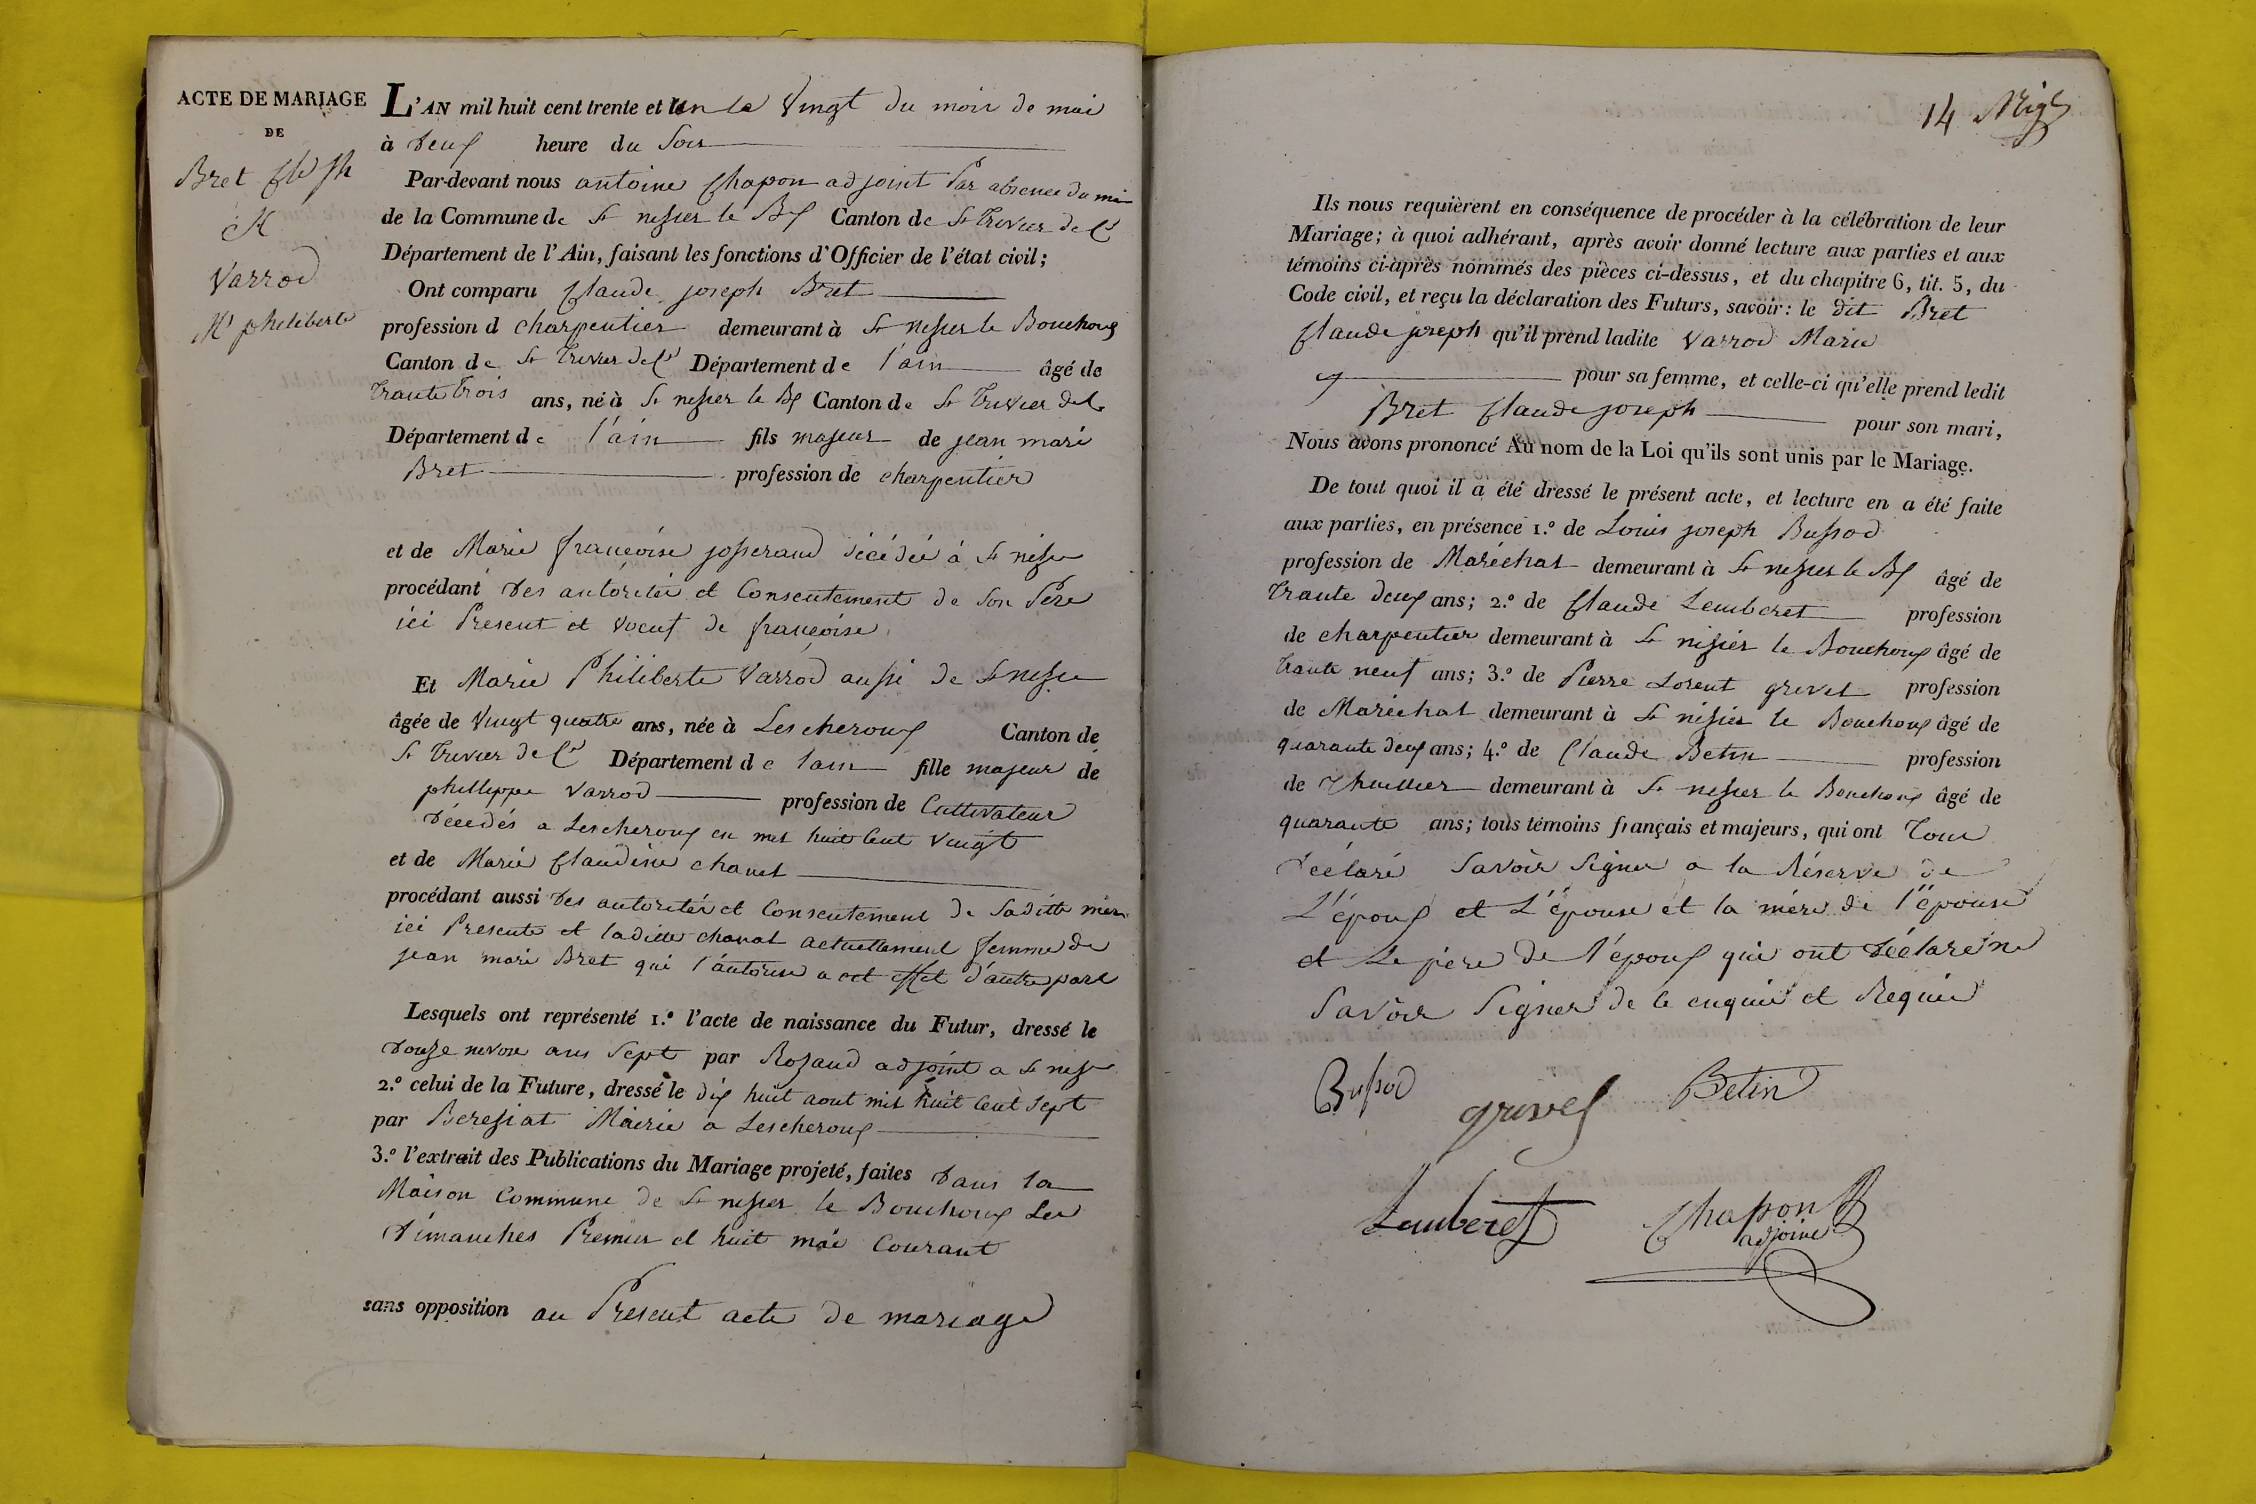 ACTE DE MARIAGE
DE
Bret Cl Jh
et
Varrod
Mie philiberte
L'AN mil huit cent trente et un le vingt du mois de mai
à deux heure du soir
Par-devant nous antoine Chapon adjoint par absence du mai
de la Commune de St nisier le Bx Canton de St Trivier de Ct
Département de l'Ain, faisant les fonctions d'Officier de l'état civil;
Ont comparu Claude joseph Bret
profession d charpentier demeurant à St nisier le Bouchoux
Canton de St Trivier de Ct Département de l'ain âgé de
trante trois ans, né à St nisier le Bx Canton de St Trivier de C
Département de l'ain fils majeur de jean mari
Bret profession de charpentier
et de Marie françoise josserand décédée à St nisier
procédant des autorités et Consentement de son Père
ici Présent et voeuf de françoise
Et Marie Philiberte Varrod aussi de St nisier
âgée de vingt quatre ans, née à Lescheroux Canton de
St Trivier de Ct Département de lain fille majeur de
philippe Varrod profession de Cultivateur
décédés a Lescheroux en mil huit Cent vingt
et de Marie Claudine chanel
procédant aussi des autorités et Consentement de saditte mère
ici Présente et ladite chanal actuellement femme de
jean mari Bret qui l'autorise a cet effet d'autre part
Lesquels ont représenté 1.º l'acte de naissance du Futur, dressé le
douze nivose ans sept par Rozand adjoint a St nisier
2.º celui de la Future, dressé le dix huit aout mil huit Cent sept
par Bereziat Mairie a Lescheroux
3.º l'extrait des Publications du Mariage projeté, faites dans la
Maison Commune de St nisier le Bouchoux Les
dimanches Premier et huit mai Courant
sans opposition au Présent acte de mariage
14
Ils nous requièrent en conséquence de procéder à la célébration de leur
Mariage; à quoi adhérant, après avoir donné lecture aux parties et aux
témoins ci-après nommés des pièces ci-dessus, et du chapitre 6, tit. 5, du
Code civil, et reçu la déclaration des Futurs, savoir: le dit Bret
Claude joseph qu'il prend ladite Varrod Marie
pour sa femme, et celle-ci qu'elle prend ledit
Bret Claude joseph pour son mari,
Nous avons prononcé Au nom de la Loi qu'ils sont unis par le Mariage.
De tout quoi il a été dressé le présent acte, et lecture en a été faite
aux parties, en présence 1.º de Louis joseph Bussod
profession de Maréchal demeurant à St nisier le Bx âgé de
trante deux ans; 2.º de Claude Lemberet profession
de charpentier demeurant à St nisier le Bouchoux âgé de
trante neuf ans; 3.º de Pierre Lorent grevel profession
de Maréchal demeurant à St nisier le Bouchoux âgé de
quarante deux ans; 4.º de Claude Betin profession
de Thuillier demeurant à St nisier le Bouchoux âgé de
quarante ans; tous témoins français et majeurs, qui ont Tous
déclaré savoir signer a la Réserve de
L'époux et L'épouse et la mère de l'épouse
et Le père de l'époux qui ont déclaré ne
savoir signer de ce enquie et Requie
Bussod
grevel
Betin
Lemberet
Chapon
adjoint